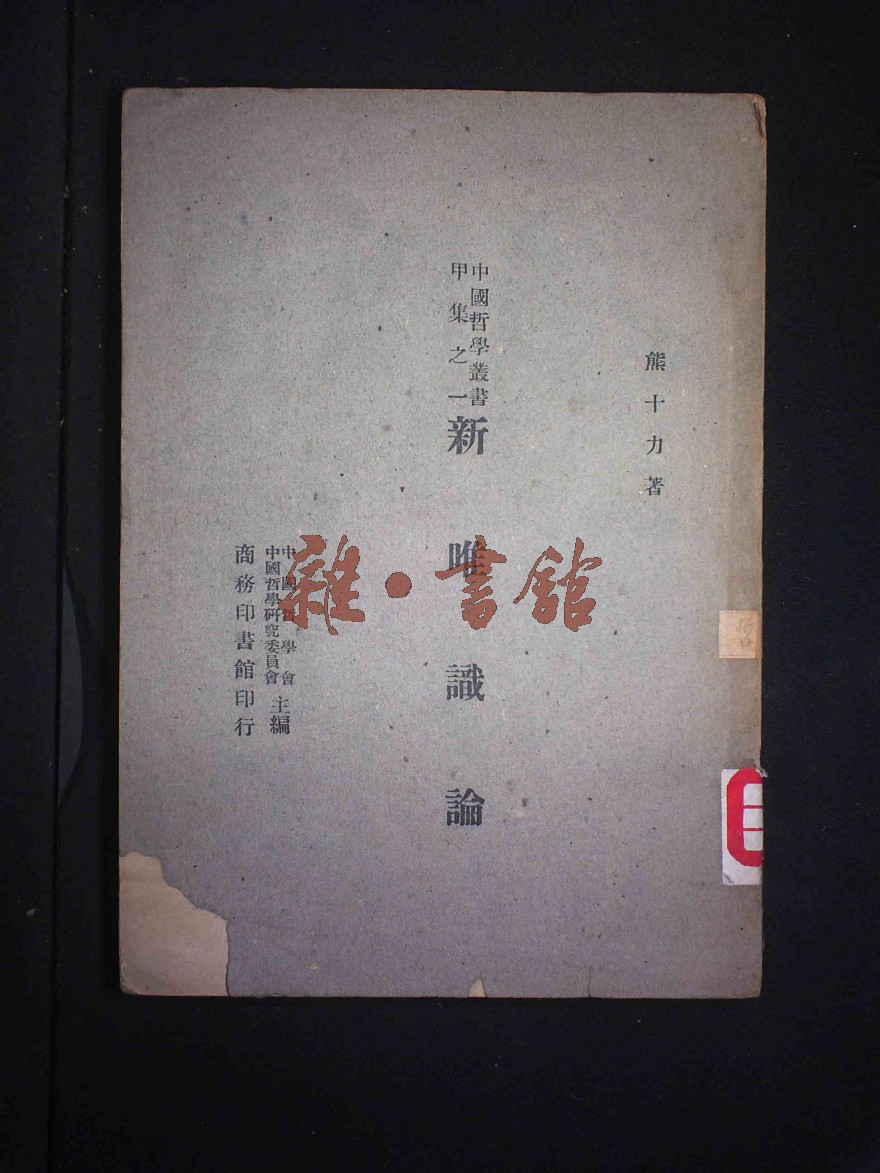 熊十力著
中國哲學叢書
甲集之一
新唯識論
中國哲學會
中國哲學研究委員會
主編
商務印書館印行
雜·書館